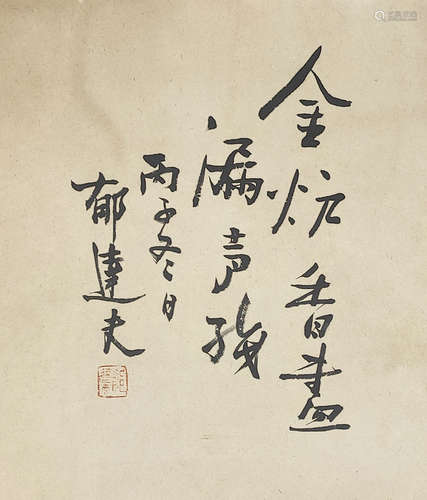 金炉香盡
漏声残
丙子冬日
郁達夫